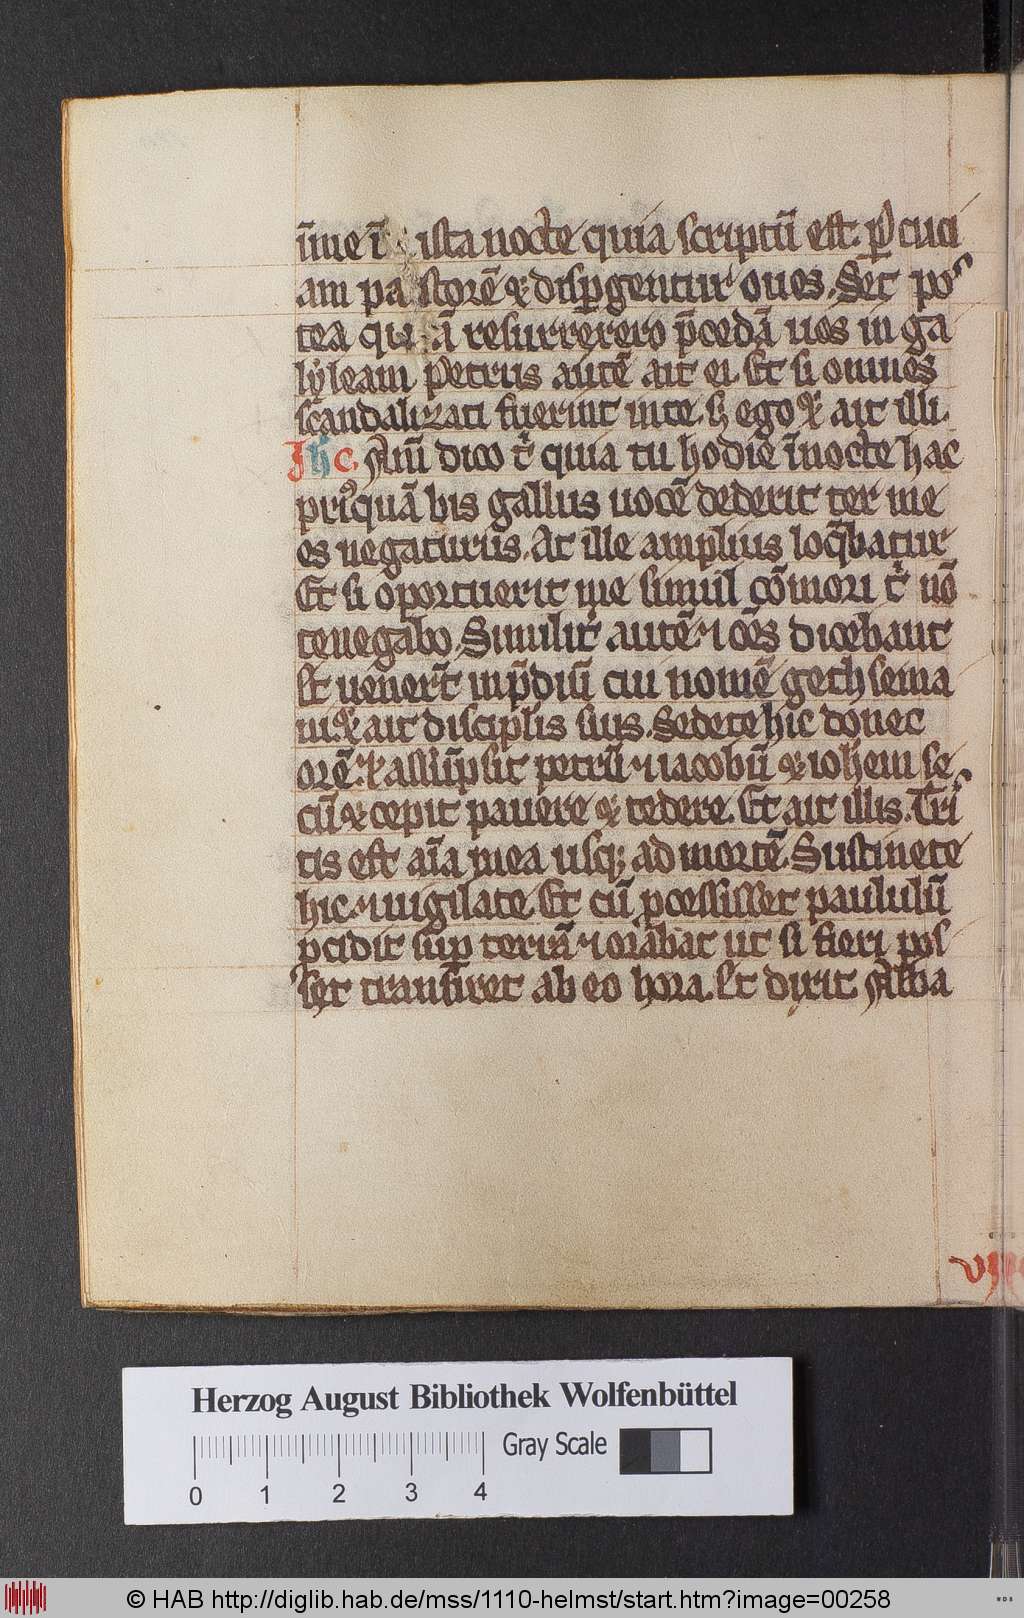 īme ī ista nocte quia scriptū est. ꝑcuci
am pa storē ⁊ disꝑgentur oues. Set pos
tea qu ā resurrexero p̄cedā uos in ga
lyleam Petrus autē ait ei. Et si omnes
scandalizati fuerint in te. s ego ⁊ ait illi.
Jhc. Am̄ dico t quia tu hodie ī nocte hac
priꝰquā bis gallus uocē dederit ter me
es negaturus. At ille amplius loq̄batur
Et si oportuerit me simul cōmori t nō
te negabo. Similit autē ⁊ oēs dicebant
Et uenert in p̄diū cui nomē gethsema
ni. ⁊ ait disciplis suis. Sedete hic donec
orē. ⁊ assūpsit petrū ⁊ iacobū ⁊ iohem se
cū ⁊ cepit pauere ⁊ tedere. Et ait illis. Tris
tis est aīa mea usq; ad mortē. Sustinete
hic. ⁊ uigilate. Et cū ꝓcessisset paululū
pcidit sup terrā ⁊ orabat ut si fieri pos
set transiret ab eo hora. Et dixit Abba
Herzog August Bibliothek Wolfenbüttel
Gray Scale
0 1 2 3 4
© HAB http://diglib.hab.de/mss/1110-helmst/start.htm?image=00258